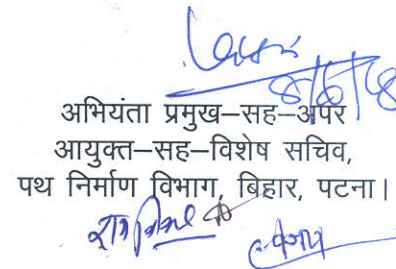 8/6/18
अभियंता प्रमुख–सह–अपर
आयुक्त–सह–विशेष सचिव,
पथ निर्माण विभाग, बिहार, पटना।